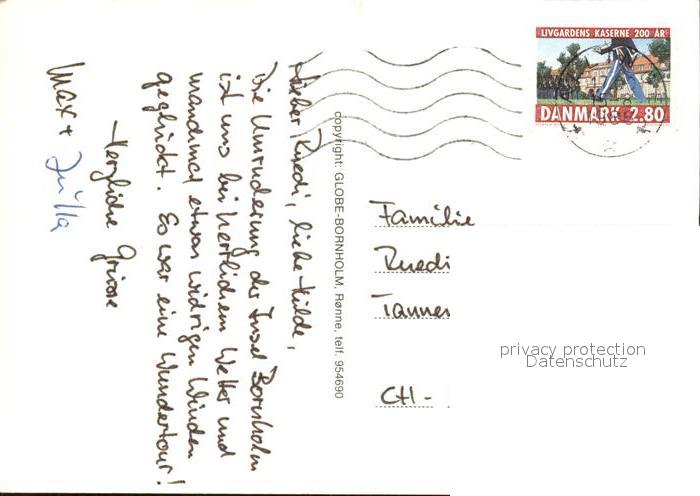 Lieber Ruedi, liebe Hilde,
Die Umruderung der Insel Bornholm
ist uns bei herrlichem Wetter und
manchmal etwas widrigen Winden
geglückt. Es war eine Wundertour!
Herzliche Grüsse
Max +
copyright: GLOBE-BORNHOLM, Rønne, telf. 954690
LIVGARDENS KASERNE 200 ÅR
DANMARK 2.80
Familie
Ruedi
Tanner
CH-
privacy protection
Datenschutz